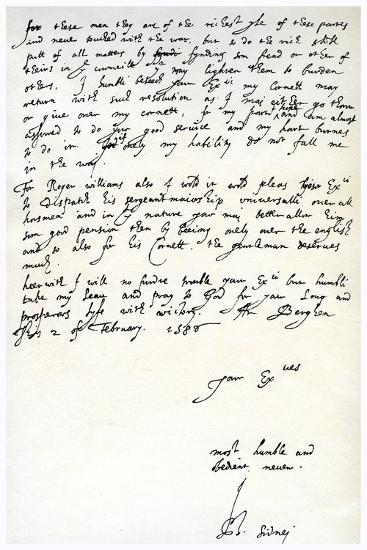 for these men they are of the richest of these partes
and never pacled with the war. but so do the rich shift
of all matters by fynding som frend or other of
theirs in may lighten them to burden
others. I humbli beseech your Ex my Cornett may
return with such resolution as I mai either go thorow
or give over my cornett, for my part I hope and am almost
assured to do good service and my hart burnes
to do it only my hability do not fall me
in the way.
For Roger williams also I wold it wold pleas your Ex
to dispatch his sergeantmaiorship universalli over all
horsmen and in nature you mai better allow him
som good pension then by being onely over the english
and so also for his Cornett. the gentleman deserves
much.
heerwith I will no furdre trouble your Ex but humbli
take my leav and prai to God for your Long and
prosperous lyfe with victori. At Berghen
this 2 of February. 1586
Your Ex
most humble and
obedient neveu.
Ph. Sidnei